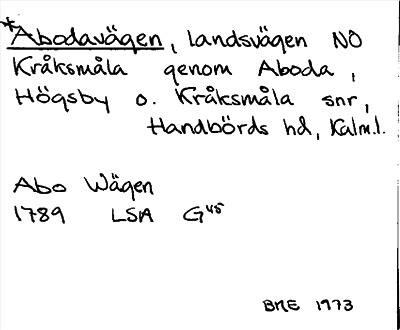 *Abodavägen, landsvägen NO
Kråksmåla genom Aboda,
Högsby o. Kråksmåla snr,
Handbörds hd, Kalm.l.
Abo Wägen
1789 LSA G45
BRE 1973